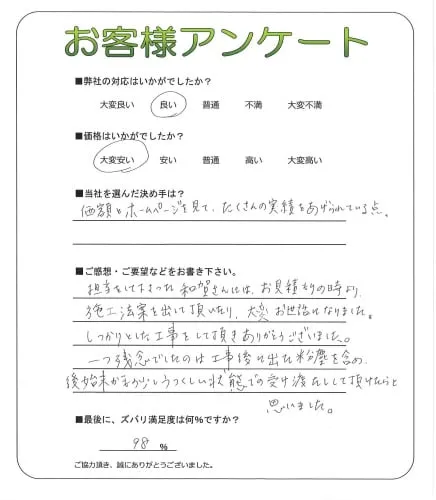 お客様アンケート
■弊社の対応はいかがでしたか?
大変良い 良い 普通 不満 大変不満
■価格はいかがでしたか?
大変安い 安い 普通 高い 大変高い
■当社を選んだ決め手は?
価額とホームページを見て、たくさんの実績をあげられている点。
■ご感想・ご要望などをお書き下さい。
担当をして下さった和賀さんには、お見積りの時より、
施工法案を出して頂いたり、大変お世話になりました。
しっかりとした工事をして頂きありがとうございました。
一つ残念でしたのは工事後に出た粉塵を含め、
後始末がもう少しうつくしい状態での受け渡しをして頂けたらと
思いました。
■最後に、ズバリ満足度は何%ですか?
98 %
ご協力頂き、誠にありがとうございました。